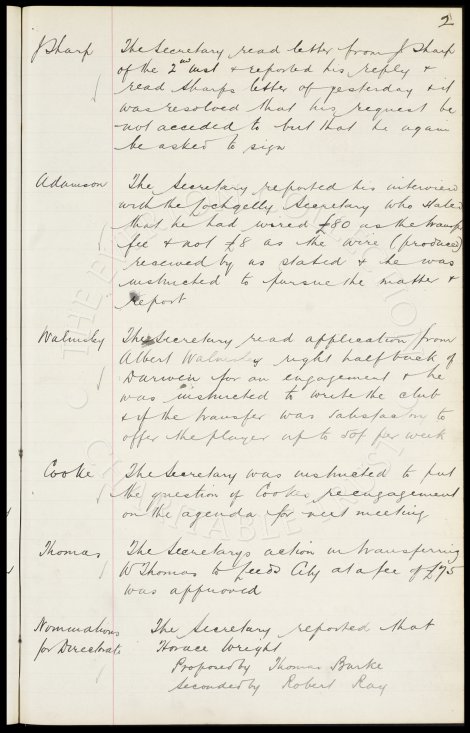 2
J Sharp The Secretary read letter from J Sharp
of the 2nd inst & reported his reply &
read Sharps letter of yesterday & it
was resolved that his request be
not acceded to but that he again
be asked to sign
Adamson The Secretary reported his interview
with the Lochgelly Secretary who stated
that he had wired £80 as the transfer
fee & not £8 as the wire (produced)
received by us stated & he was
instructed to pursue the matter &
report
Walmsley The Secretary read application from
Albert Walmsley right half back of
Darwen for an engagement & he
was instructed to write the club
& if the transfer was satisfactory to
offer the player up to 50/- per week
Cooke The Secretary was instructed to put
the question of Cookes re-engagement
on the agenda for next meeting
Thomas The Secretarys action in transferring
W Thomas to Leeds City at a fee of £75
was approved
Nominations The Secretary reported that
for Directorate Horace Wright
Proposed by Thomas Burke
Seconded by Robert Ray
THE EVERTON COLLECTION
CHARITABLE TRUST